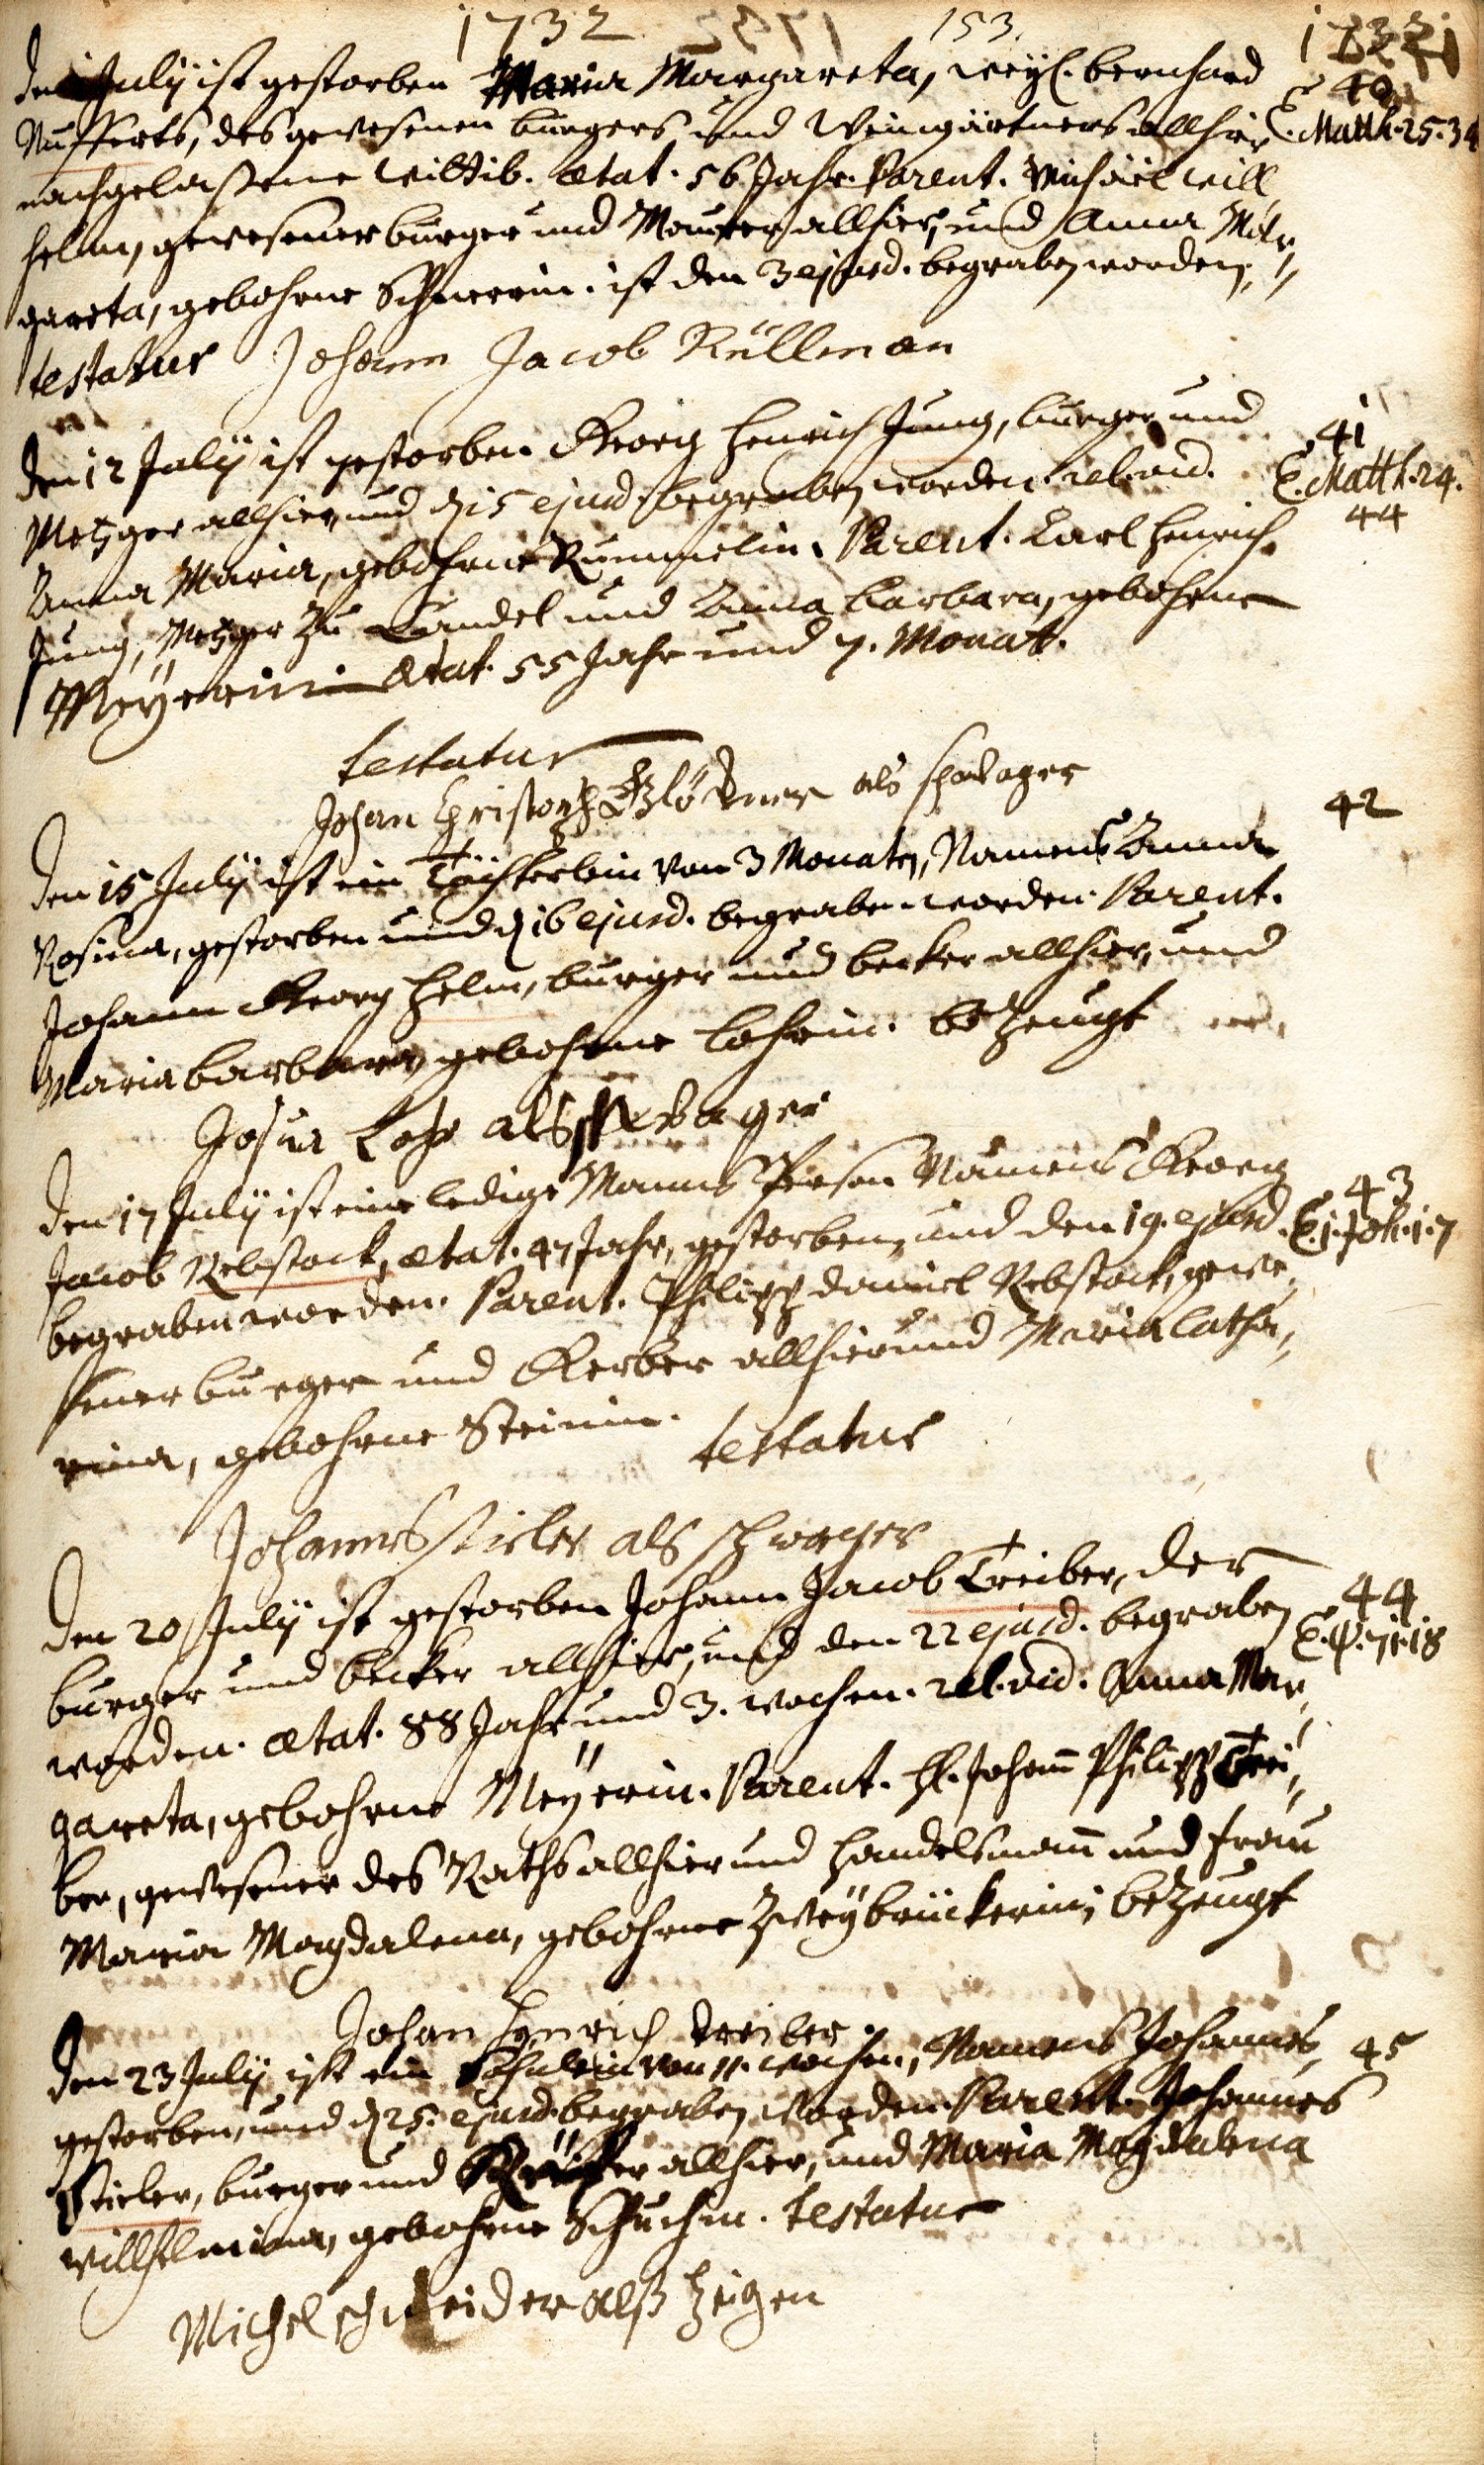 1732 153. 1732
den 1 July ist gestorben Maria Margareta, weyl. bernhard
Nufferts, des gewesenen burgers und Weingärtners allhier
40
E. Matth. 25. 34
nachgelaßene wittib. ætat. 56 Jahr. Parent. Michäel Will,
helm, gewesener burger und Maurer allhier, und Anna Mar,
gareta, gebohrne Schneerin. ist den 3 ejusd. begraben worden,
testatur Johann Jacob Rüllman
den 12 July ist gestorben Georg Henrich Jung, burger und
41
Metzger allhier, und d. 15 ejusd. begraben worden. rel. vid.
E. Matth. 24.
44
Anna Maria, gebohrne Rummelin. Parent. Carl Henrich
Jung, Metzger zu Candel und Anna Barbara, gebohrne
Meÿerin. ætat. 55 Jahr und 7. Monat.
testatur
Johan Christoph Blödner als schwager
42
den 15 July ist ein Töchterlein von 3 Monaten, Namens Anna
Rosina, gestorben und d. 16 ejusd. begraben worden. Parent.
Johann Georg Helm, burger und becker allhier, und
Maria barbara, gebohrne Lohrin. bezeugt
Josua Lohr als schwager
den 17 July ist eine ledige Manns Person Namens Georg
43
Jacob Rebstock, ætat. 47 Jahr, gestorben, und den 19. ejusd.
E. 1. Joh. 1. 7
begraben worden. Parent. Philipp Daniel Rebstock, gewe,
sener burger und Gerber allhier und Maria Catha,
rina, gebohrne Steinin. testatur
Johannes stieler als schwager
den 20 July ist gestorben Johann Jacob Treiber, der
44
burger und becker allhier, und den 22 ejusd. begraben
E. ψ. 71. 18
worden. ætat. 88 Jahr und 3. wochen. rel. vid. Anna Mar,
gareta, gebohrne Meÿerin. Parent. H. Johann Philipp Trei,
ber, gewesener des Raths allhier und handelsmann und Frau
Maria Magdalena, gebohrne Zweÿbrückerin, bezeugt
Johan Henrich Treiber
den 23 July ist ein Söhnlein von 11. wochen, Namens Johannes,
45
gestorben, und d. 25. ejusd. begraben worden. Parent. Johannes
Stieler, burger und allhier, und Maria Magdalena
Willhelmina, gebohrne Schuchin. testatur
Michel schneider alß Zeigen